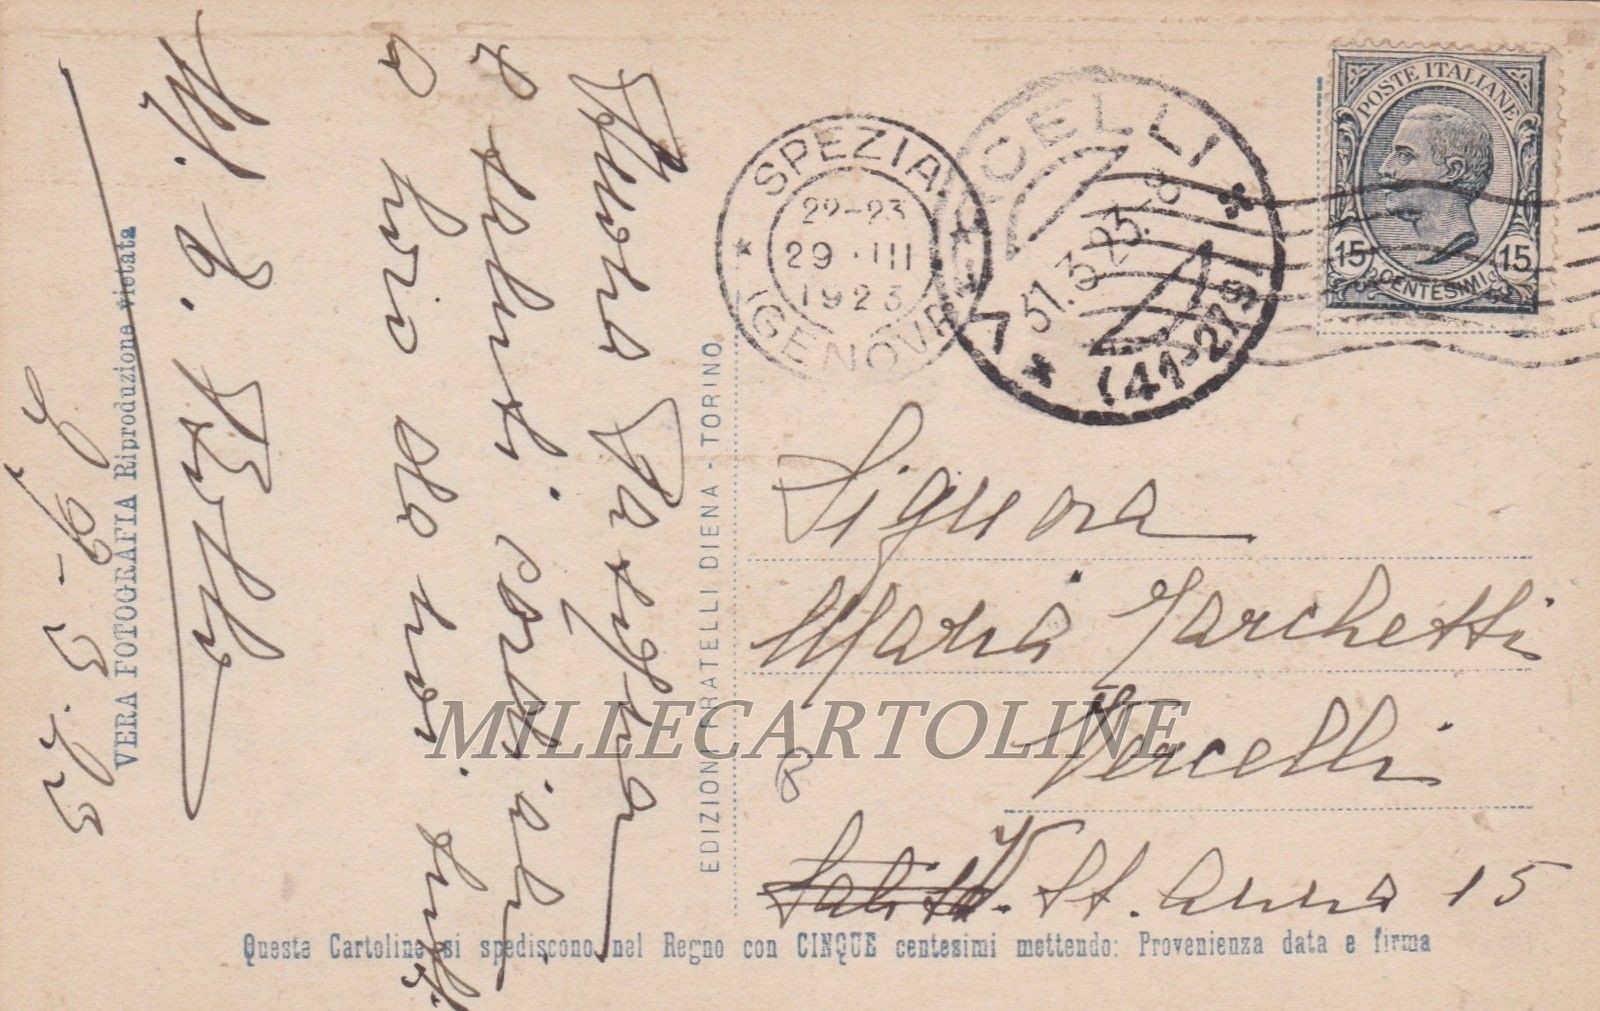 Buona Pasqua
e saluti cordiali
a Loro da noi tutti
VERA FOTOGRAFIA Riproduzione vietata
EDIZIONI FRATELLI DIENA - TORINO
SPEZIA
22-23
29 · III
1923
(GENOVA)
CELLI
31.3.23.-8
(41-279)
POSTE ITALIANE
15 CENTESIMI 15
Signora
Maria Marchetti
Vercelli
V. St. Anna 15
MILLECARTOLINE
Queste Cartoline si spediscono nel Regno con CINQUE centesimi mettendo: Provenienza data e firma